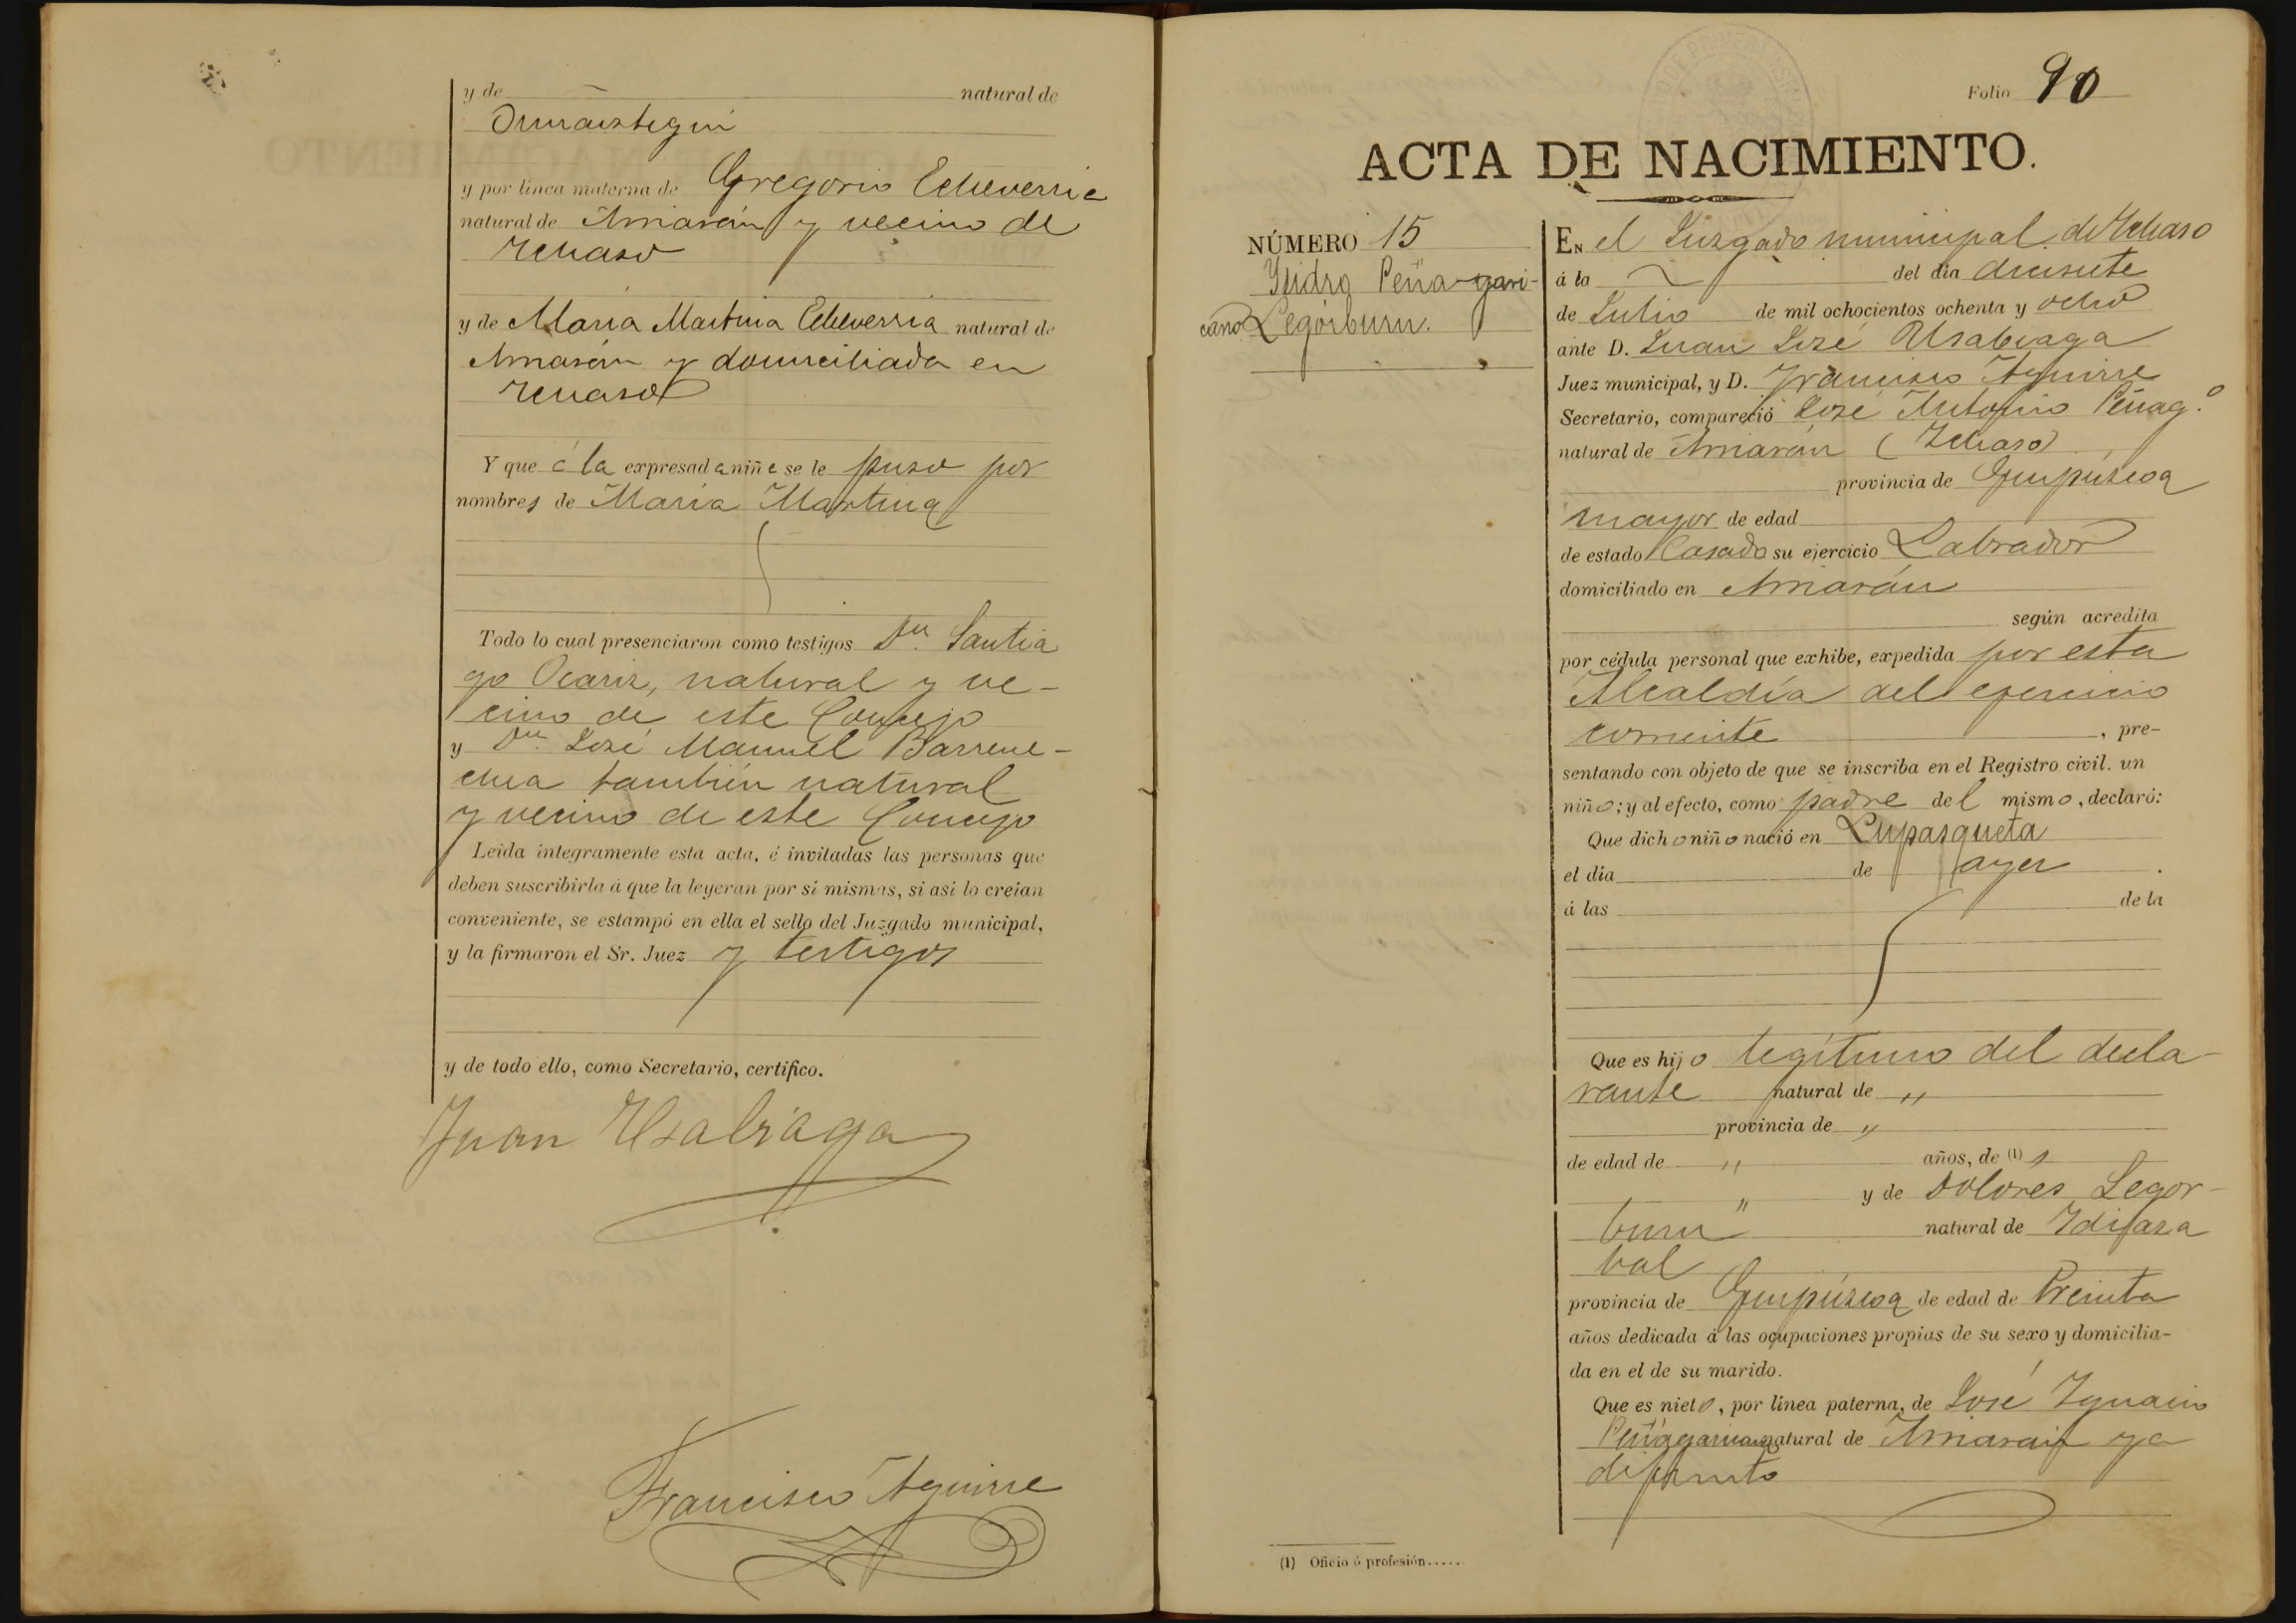 y de natural de
Ormaiztegui
y por linea materna de Gregorio Echeverria
natural de Arriarán y vecino de
Ichaso
y de Maria Martina Echeverria natural de
Arriarán y domiciliada en
Ichaso
Y que á la expresada niña se le puso por
nombres de Maria Martina
Todo lo cual presenciaron como testigos Dn. Santia
go Ocariz, natural y ve-
cino de este Concejo
y Dn. José Manuel Barrene-
chea también natural
y vecino de este Concejo
Leida integramente esta acta, é invitadas las personas que
deben suscribirla á que la leyeran por sí mismas, si así lo creían
conveniente, se estampó en ella el sello del Juzgado municipal,
y la firmaron el Sr. Juez y testigos
y de todo ello, como Secretario, certifico.
Juan Usabiaga
Francisco Aguirre
Folio 90
ACTA DE NACIMIENTO.
NÚMERO 15
Ysidro Peña-gari-
cano Legórburu.
EN el Juzgado municipal de Ichaso
á la del dia diecisiete
de Julio de mil ochocientos ochenta y ocho
ante D. Juan José Usabiaga
Juez municipal, y D. Francisco Aguirre
Secretario, compareció José Antonio Peñag.º
natural de Arriarán (Ichaso)
provincia de Guipúzcoa
mayor de edad
de estado Casado su ejercicio Labrador
domiciliado en Arriarán
según acredita
por cédula personal que exhibe, expedida por esta
Alcaldía del ejercicio
corriente, pre-
sentando con objeto de que se inscriba en el Registro civil. un
niño; y al efecto, como padre del mismo, declaró:
Que dicho niño nació en Lupasqueta
el dia de ayer.
á las de la
Que es hijo legítimo del decla-
rante natural de "
provincia de "
de edad de " años, de (1) "
" y de Dolores Legor-
buru natural de Idiaza
bal
provincia de Guipúzcoa de edad de treinta
años dedicada á las ocupaciones propias de su sexo y domicilia-
da en el de su marido.
Que es nieto, por linea paterna, de José Ignacio
Peñagaricano natural de Arriarán ya
difunto
(1) Oficio ó profesión......